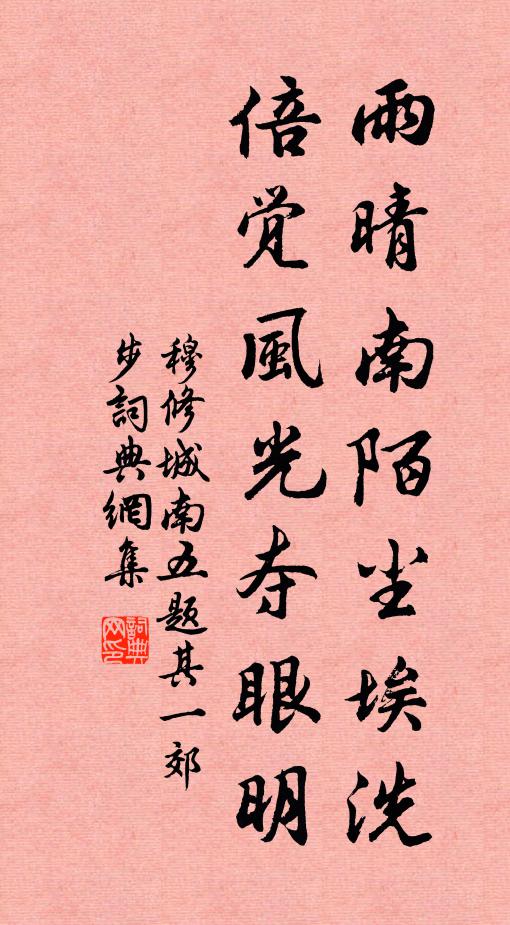 雨晴南陌尘埃洗
倍觉風光夺眼明
穆修城南五题其一郊
步詞典網集
詞典网印